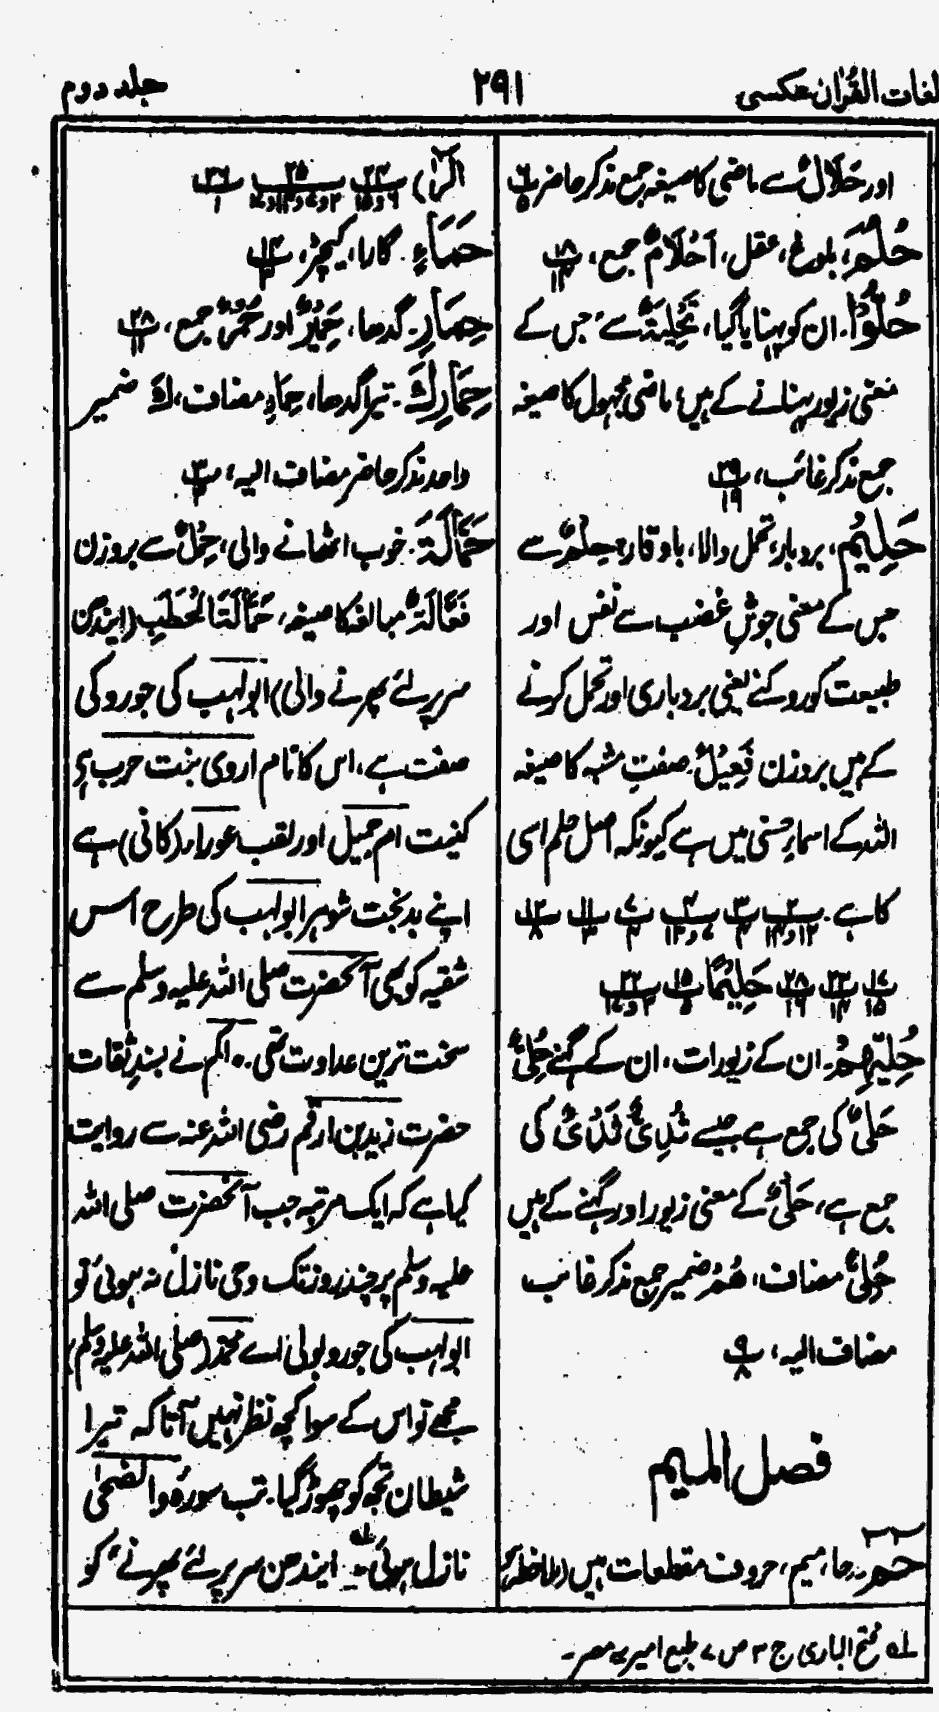 لغات القرآن عکسی ۲۹۱ جلد دوم
اور حَلَالٌ سے ماضی کا صیغہ جمع مذکر حاضر
حُلُمَ، بلوغ، عقل، اَحْلَامٌ جمع،
حُلُّوْا۔ ان کو پہنایا گیا، تَحْلِیَۃٌ سے، جس کے
معنی زیور پہنانے کے ہیں، ماضی مجہول کا صیغہ
جمع مذکر غائب،
حَلِیْمٌ، بردبار، تحمل والا، باوقار، حِلْمٌ سے
جس کے معنی جوشِ غضب سے نفس اور
طبیعت کو روکنے یعنی بردباری اور تحمل کرنے
کے ہیں بروزن فَعِیْلٌ صفتِ مشبہ کا صیغہ
اللہ کے اسماءِ حسنی میں ہے کیونکہ اصل حلم اسی
کا ہے۔
حَلِیْمًا
حُلِیِّھِمْ۔ ان کے زیورات، ان کے گہنے حُلِیٌّ
حَلْیٌ کی جمع ہے جیسے ثُدِیٌّ ثَدْیٌ کی
جمع ہے، حَلْیٌ کے معنی زیور اور گہنے کے ہیں
حُلِیٌّ مضاف، ھُمْ ضمیر جمع مذکر غائب
مضاف الیہ،
فصل المیم
حٰمٓ۔ حا، میم، حروف مقطعات ہیں (ملاحظہ ہو
الٓرٰ)
حَمَاءٍ۔ گارا، کیچڑ،
حِمَارٍ۔ گدھا، حَمِیْرٌ اور حُمُرٌ جمع،
حِمَارِكَ۔ تیرا گدھا، حِمَارِ مضاف، كَ ضمیر
واحد مذکر حاضر مضاف الیہ،
حَمَّالَۃَ۔ خوب اٹھانے والی، حَمْلٌ سے بروزن
فَعَّالَۃٌ مبالغہ کا صیغہ، حَمَّالَۃَ الْحَطَبِ (ایندھن
سر پر لئے پھرنے والی) ابو لہب کی جورو کی
صفت ہے، اس کا نام اروی بنت حرب ہے
کنیت ام جمیل اور لقب عوراء (کانی) ہے
اپنے بدبخت شوہر ابو لہب کی طرح اس
شقیہ کو بھی آنحضرت صلی اللہ علیہ وسلم سے
سخت ترین عداوت تھی۔ حاکم نے بسندِ ثقات
حضرت زید بن ارقم رضی اللہ عنہ سے روایت
کیا ہے کہ ایک مرتبہ جب آنحضرت صلی اللہ
علیہ وسلم پر چند روز تک وحی نازل نہ ہوئی تو
ابو لہب کی جورو بولی اے محمد (صلی اللہ علیہ وسلم)
مجھے تو اس کے سوا کچھ نظر نہیں آتا کہ تیرا
شیطان تجھ کو چھوڑ گیا۔ تب سورۂ والضحیٰ
نازل ہوئی۔ ایندھن سر پر لئے پھرنے کو
لہ فتح الباری ج ۳ ص ۷ طبع امیریہ مصر۔